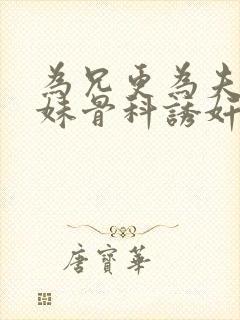 為兄更為夫
妹骨科誘奸
唐寶華